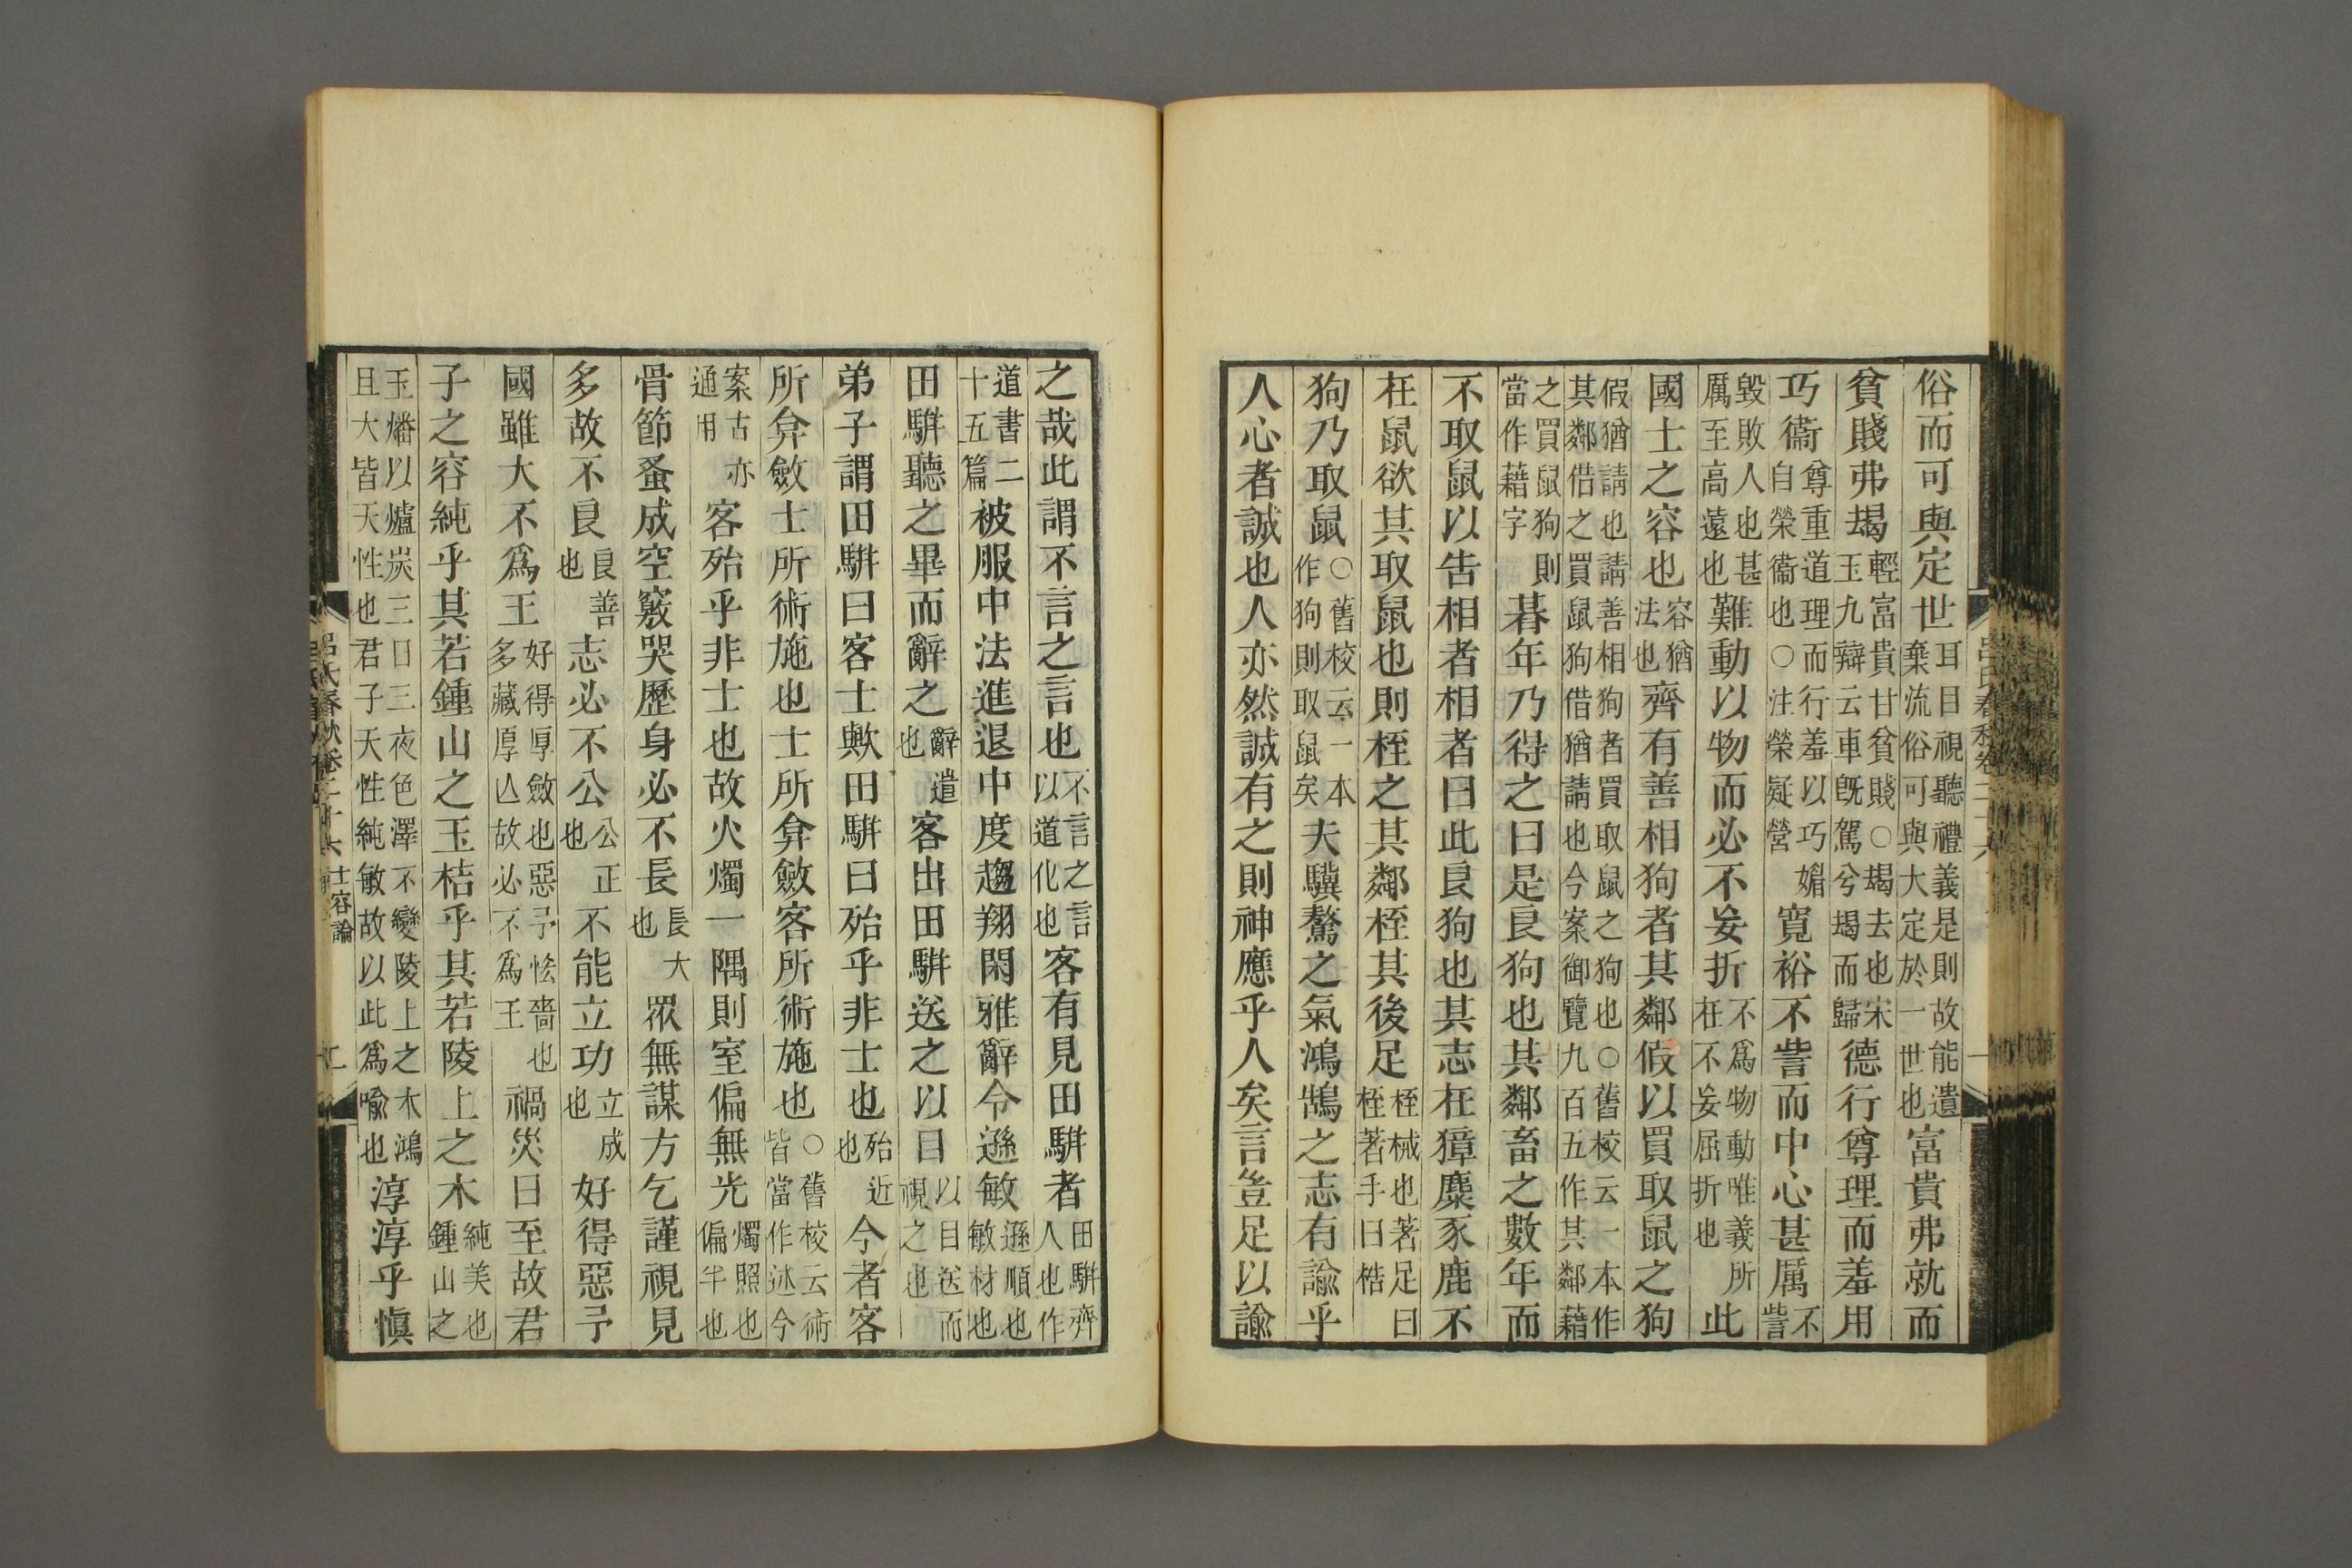 俗而可與定世耳目視聽禮義是則故能遺棄流俗可與大定於一世也富貴弗就而
貧賤弗朅輕富貴甘貧賤○朅去也宋玉九辯云車旣駕兮朅而歸德行尊理而羞用
巧衞尊重道理而行羞以巧媚自榮衞也○注榮疑營寬裕不訾而中心甚厲訾不
毀敗人也甚厲至高遠也難動以物而必不妄折不爲物動唯義所在不妄屈折也此
國士之容也容猶法也齊有善相狗者其鄰假以買取鼠之狗
假猶請也請善相狗者買取鼠之狗也○舊校云一本作其鄰借之買鼠狗借猶請也今案御覽九百五作其鄰藉
之買鼠狗則當作藉字朞年乃得之曰是良狗也其鄰畜之數年而
不取鼠以告相者相者曰此良狗也其志在獐麋豕鹿不
在鼠欲其取鼠也則桎之其鄰桎其後足桎械也著足曰桎著手曰梏
狗乃取鼠○舊校云一本作狗則取鼠矣夫驥驁之氣鴻鵠之志有諭乎
人心者誠也人亦然誠有之則神應乎人矣言豈足以諭
之哉此謂不言之言也不言之言以道化也客有見田駢者田駢齊人也作
道書二十五篇被服中法進退中度趨翔閑雅辭令遜敏遜順也敏材也
田駢聽之畢而辭之辭遣也客出田駢送之以目以目送而視之也
弟子謂田駢曰客士歟田駢曰殆乎非士也殆近也今者客
所弇斂士所術施也士所弇斂客所術施也○舊校云術皆當作述今
案古亦通用客殆乎非士也故火燭一隅則室偏無光燭照也偏半也
骨節蚤成空竅哭歷身必不長長大也眾無謀方乞謹視見
多故不良良善也志必不公公正也不能立功立成也好得惡予
國雖大不爲王好得厚斂也惡予恡嗇也多藏厚亾故必不爲王禍災日至故君
子之容純乎其若鍾山之玉桔乎其若陵上之木純美也鍾山之
玉燔以爐炭三日三夜色澤不變陵上之木鴻且大皆天性也君子天性純敏故以此爲喻也淳淳乎愼
呂氏春秋卷二十六 士容論 二